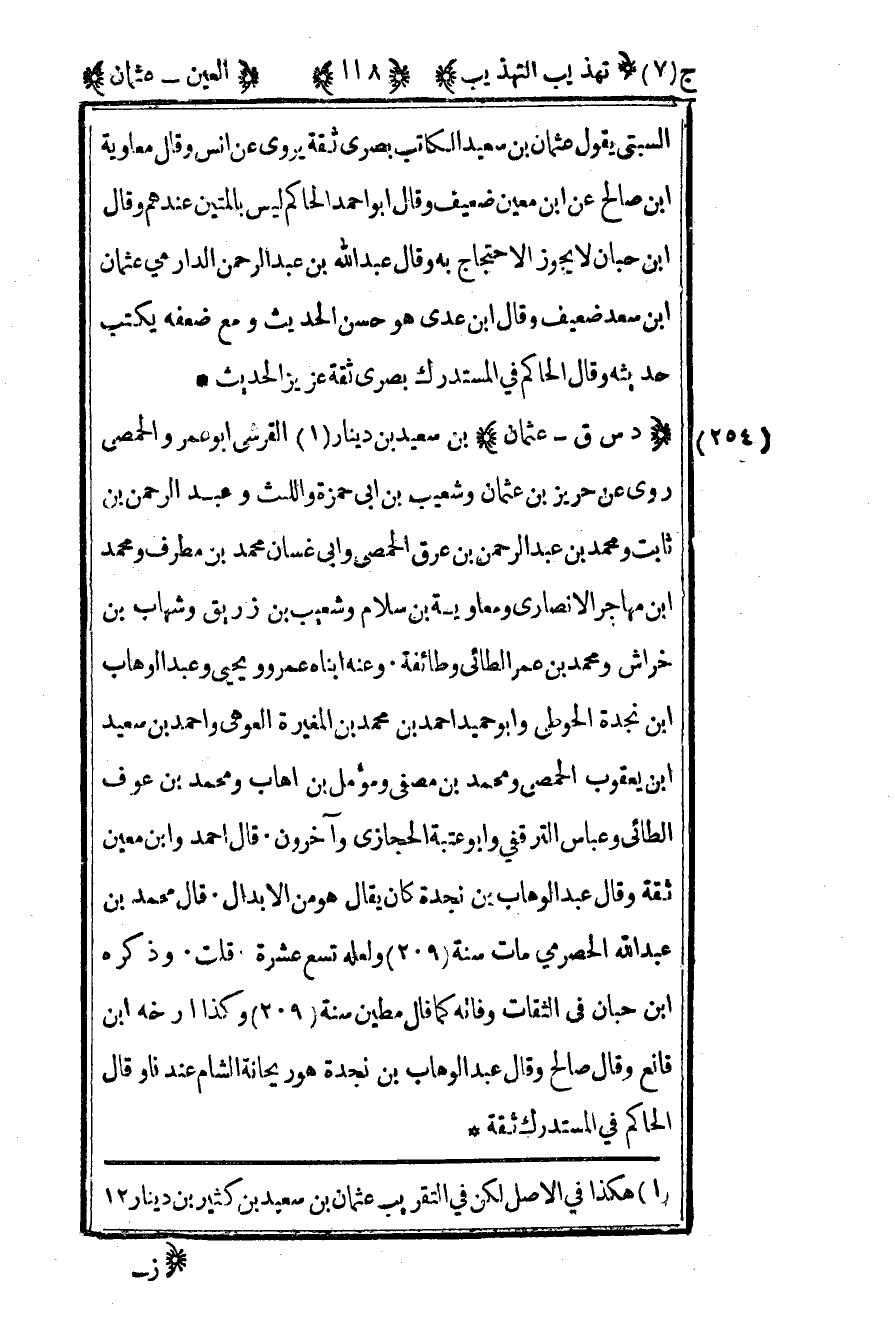 ج (٧) ﴿ تهذيب التهذيب ﴾ ﴿ ١١٨ ﴾ ﴿ العين - عثمان ﴾
السبتى يقول عثمان بن سعيد الكاتب بصرى ثقة يروى عن انس وقال معاوية
ابن صالح عن ابن معين ضعيف وقال ابو احمد الحاكم ليس بالمتين عندهم وقال
ابن حبان لا يجوز الاحتجاج به وقال عبد الله بن عبد الرحمن الدارمي عثمان
ابن سعد ضعيف وقال ابن عدى هو حسن الحديث و مع ضعفه يكتب
حديثه وقال الحاكم في المستدرك بصرى ثقة عزيز الحديث *
(٢٥٤) ﴿ د س ق - عثمان ﴾ بن سعيد بن دينار (١) القرشى ابو عمر و الحمصى
روى عن حريز بن عثمان وشعيب بن ابى حمزة والليث و عبد الرحمن بن
ثابت و محمد بن عبد الرحمن بن عرق الحمصى وابى غسان محمد بن مطرف و محمد
ابن مهاجر الانصارى و معاوية بن سلام وشعيب بن زريق وشهاب بن
خراش و محمد بن عمر الطائى وطائفة ٠ وعنه ابناه عمرو و يحيى و عبد الوهاب
ابن نجدة الحوطي وابو حميد احمد بن محمد بن المغيرة العوهى واحمد بن سعيد
ابن يعقوب الحمصى و محمد بن مصفى ومؤمل بن اهاب ومحمد بن عوف
الطائى وعباس الترقفي وابو عتبة الحجازى وآخرون ٠ قال احمد وابن معين
ثقة وقال عبد الوهاب بن نجدة كان يقال هو من الابدال ٠ قال محمد بن
عبد الله الحصرمي مات سنة (٢٠٩) ولعله تسع عشرة ٠ قلت ٠ وذكره
ابن حبان فى الثقات وفاته كما قال مطين سنة (٢٠٩) وكذا ارخه ابن
قانع وقال صالح وقال عبد الوهاب بن نجدة هو ريحانة الشام عندنا وقال
الحاكم في المستدرك ثقة *
(١) هكذا في الاصل لكن في التقريب عثمان بن سعيد بن كثير بن دينار ١٢
﴿ ز-